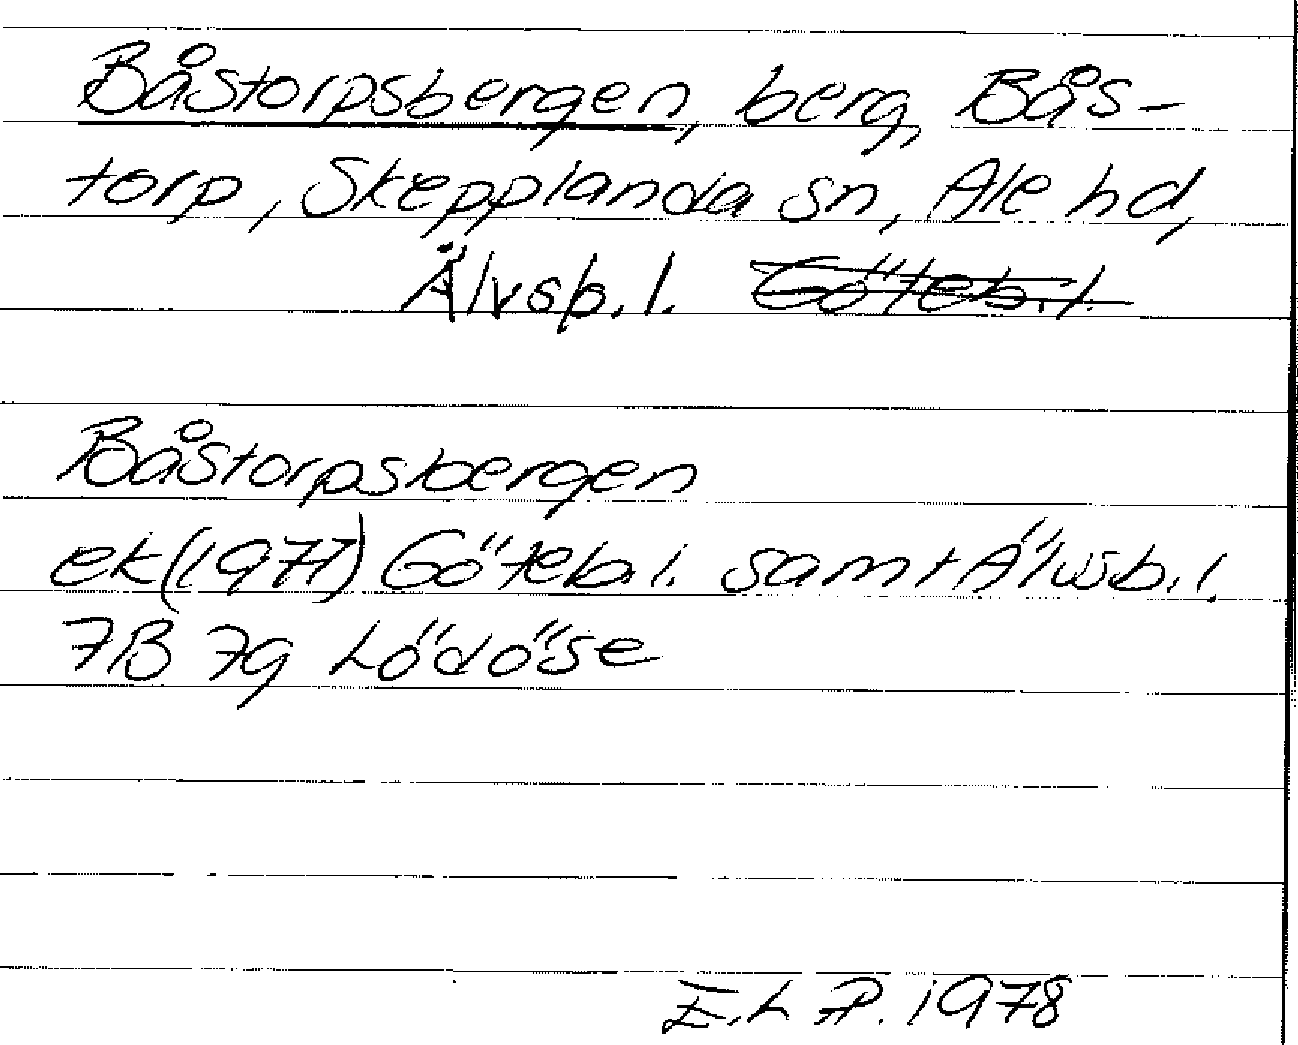 Båstorpsbergen, berg, Bås-
torp, Skepplanda sn, Ale hd,
Älvsb. l. Göteb. l.
Båstorpsbergen
ek (1977) Göteb. l. samt Älvsb. l.
7B 7g Lödöse
E.L.P. 1978